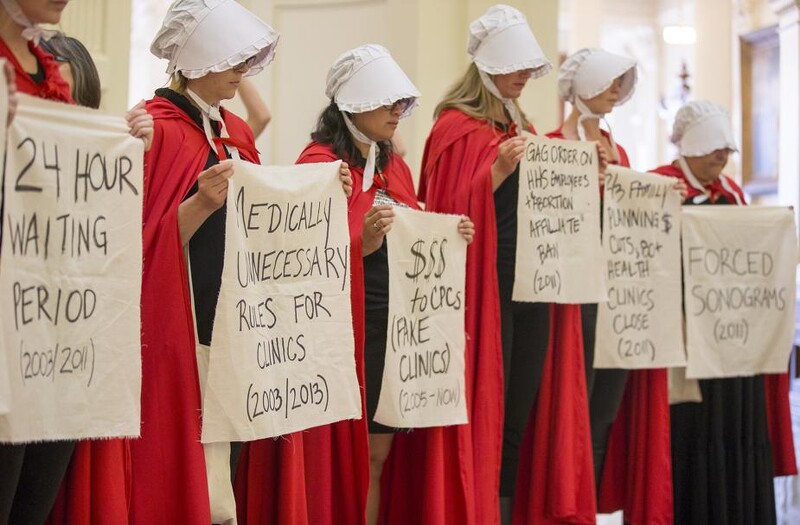 24 HOUR
WAITING
PERIOD
(2003/2011)
MEDICALLY
UNNECESSARY
RULES FOR
CLINICS
(2003/2013)
$$$
to CPCs
(FAKE
CLINICS)
(2005-NOW)
GAG ORDER ON
HHS EMPLOYEES
+"ABORTION
AFFILIATE"
BAN
(2011)
2/3 FAMILY
PLANNING $
CUTS, BC+
HEALTH
CLINICS
CLOSE
(2011)
FORCED
SONOGRAMS
(2011)